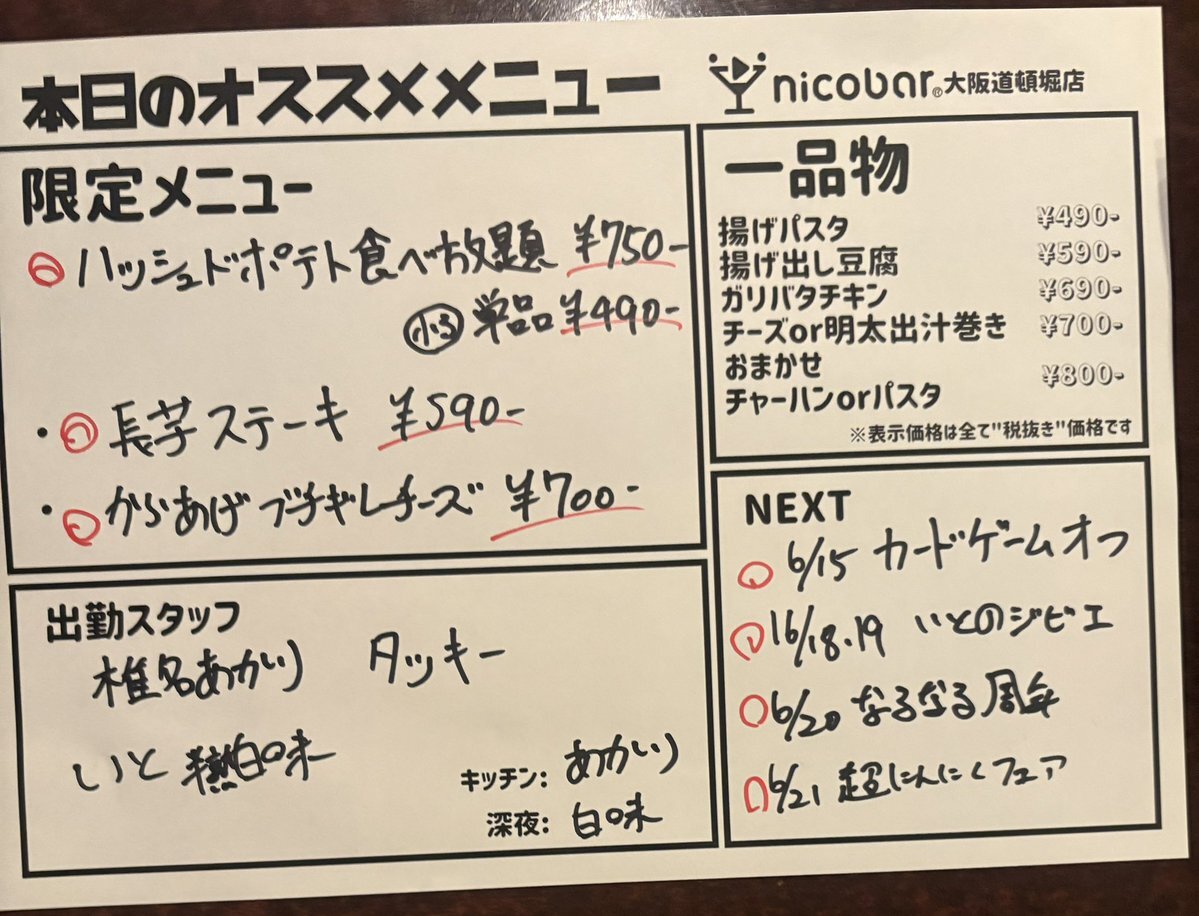 本日のオススメメニュー
nicobar®大阪道頓堀店
限定メニュー
ハッシュドポテト食べ放題 ¥750-
単品 ¥490-
・長芋ステーキ ¥590-
・からあげブチギレチーズ ¥700-
一品物
揚げパスタ ¥490-
揚げ出し豆腐 ¥590-
ガリバタチキン ¥690-
チーズor明太出汁巻き ¥700-
おまかせ
チャーハンorパスタ ¥800-
※表示価格は全て"税抜き"価格です
出勤スタッフ
椎名あかり タッキー
いと 白味
キッチン: あかり
深夜: 白味
NEXT
6/15 カードゲームオフ
6/18.19 いとのジビエ
6/20 なるなる周年
6/21 超にんにくフェア